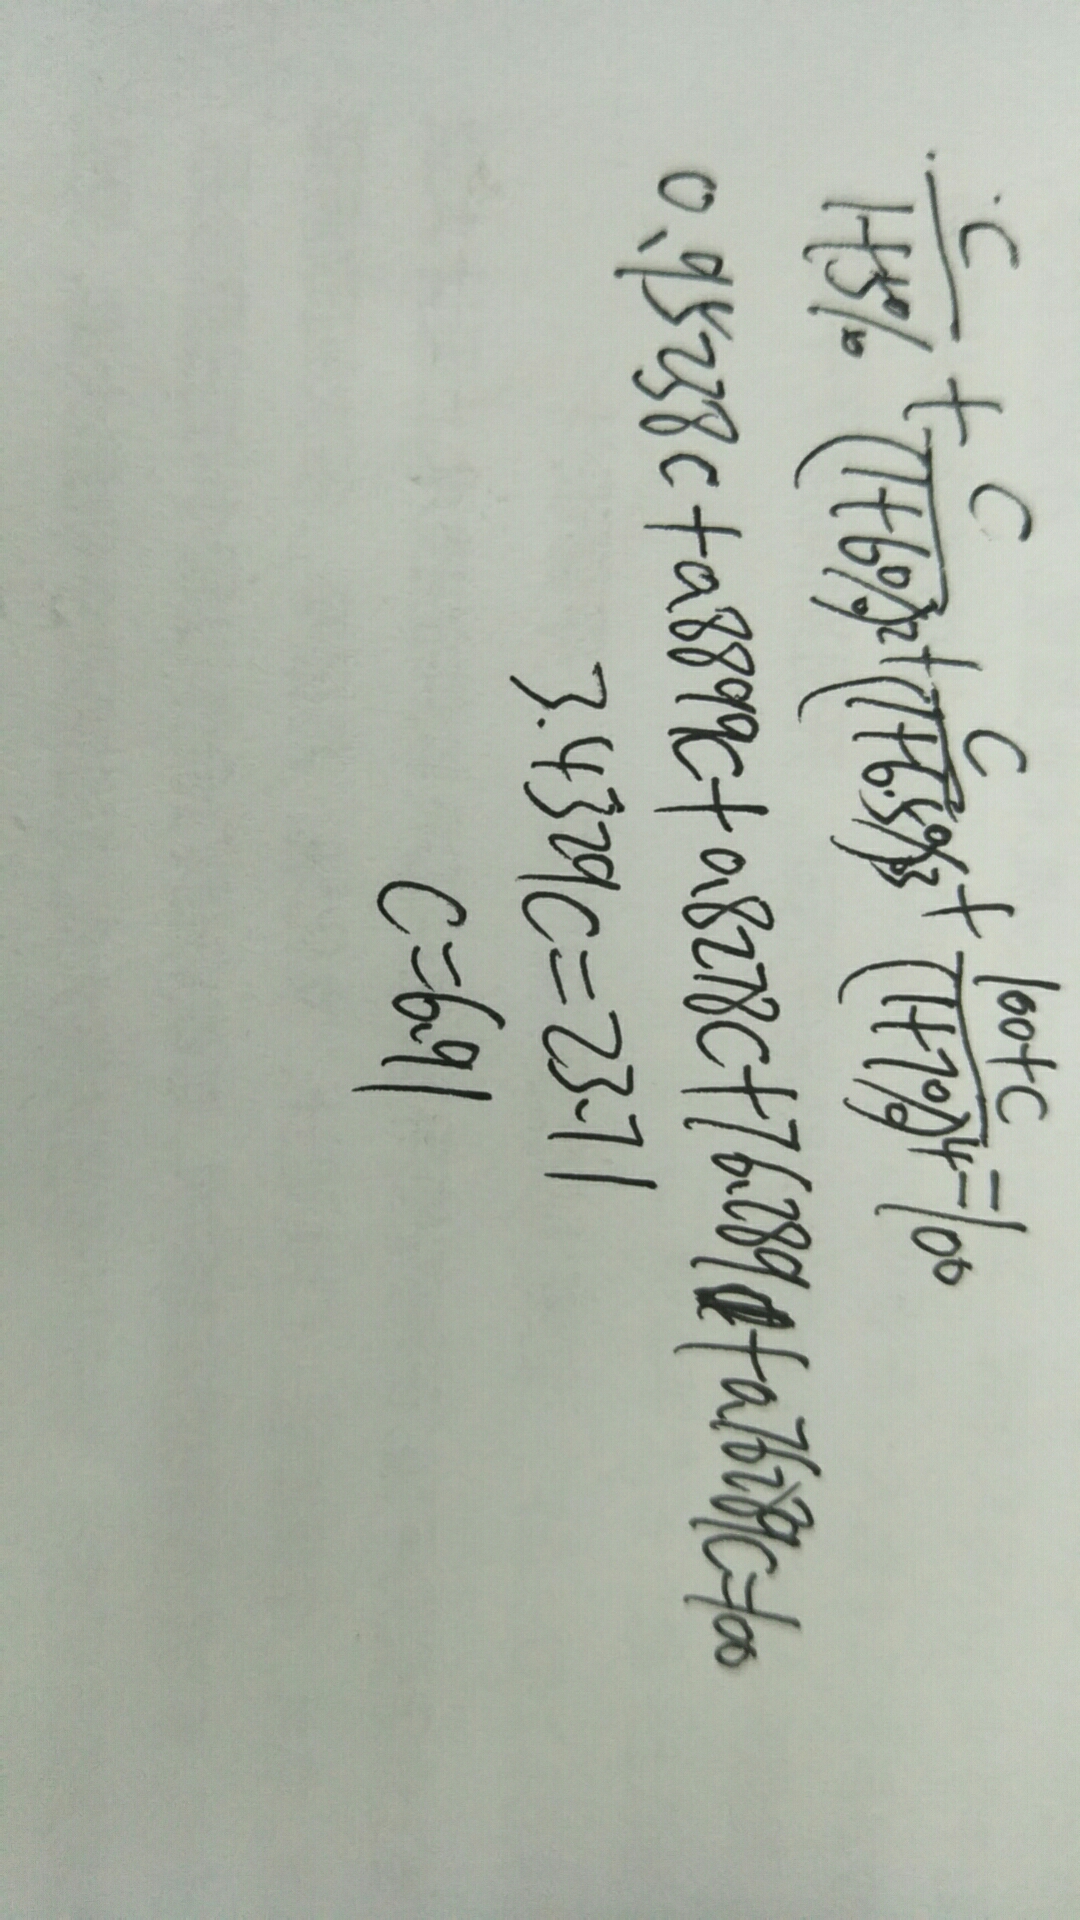 C/(1+5%) + C/(1+6%)² + C/(1+6.5%)³ + (100+C)/(1+7%)⁴ = 100
0.95238C + 0.8899C + 0.8278C + 76.289 + 0.76289C = 100
3.4329C = 23.71
C = 6.91